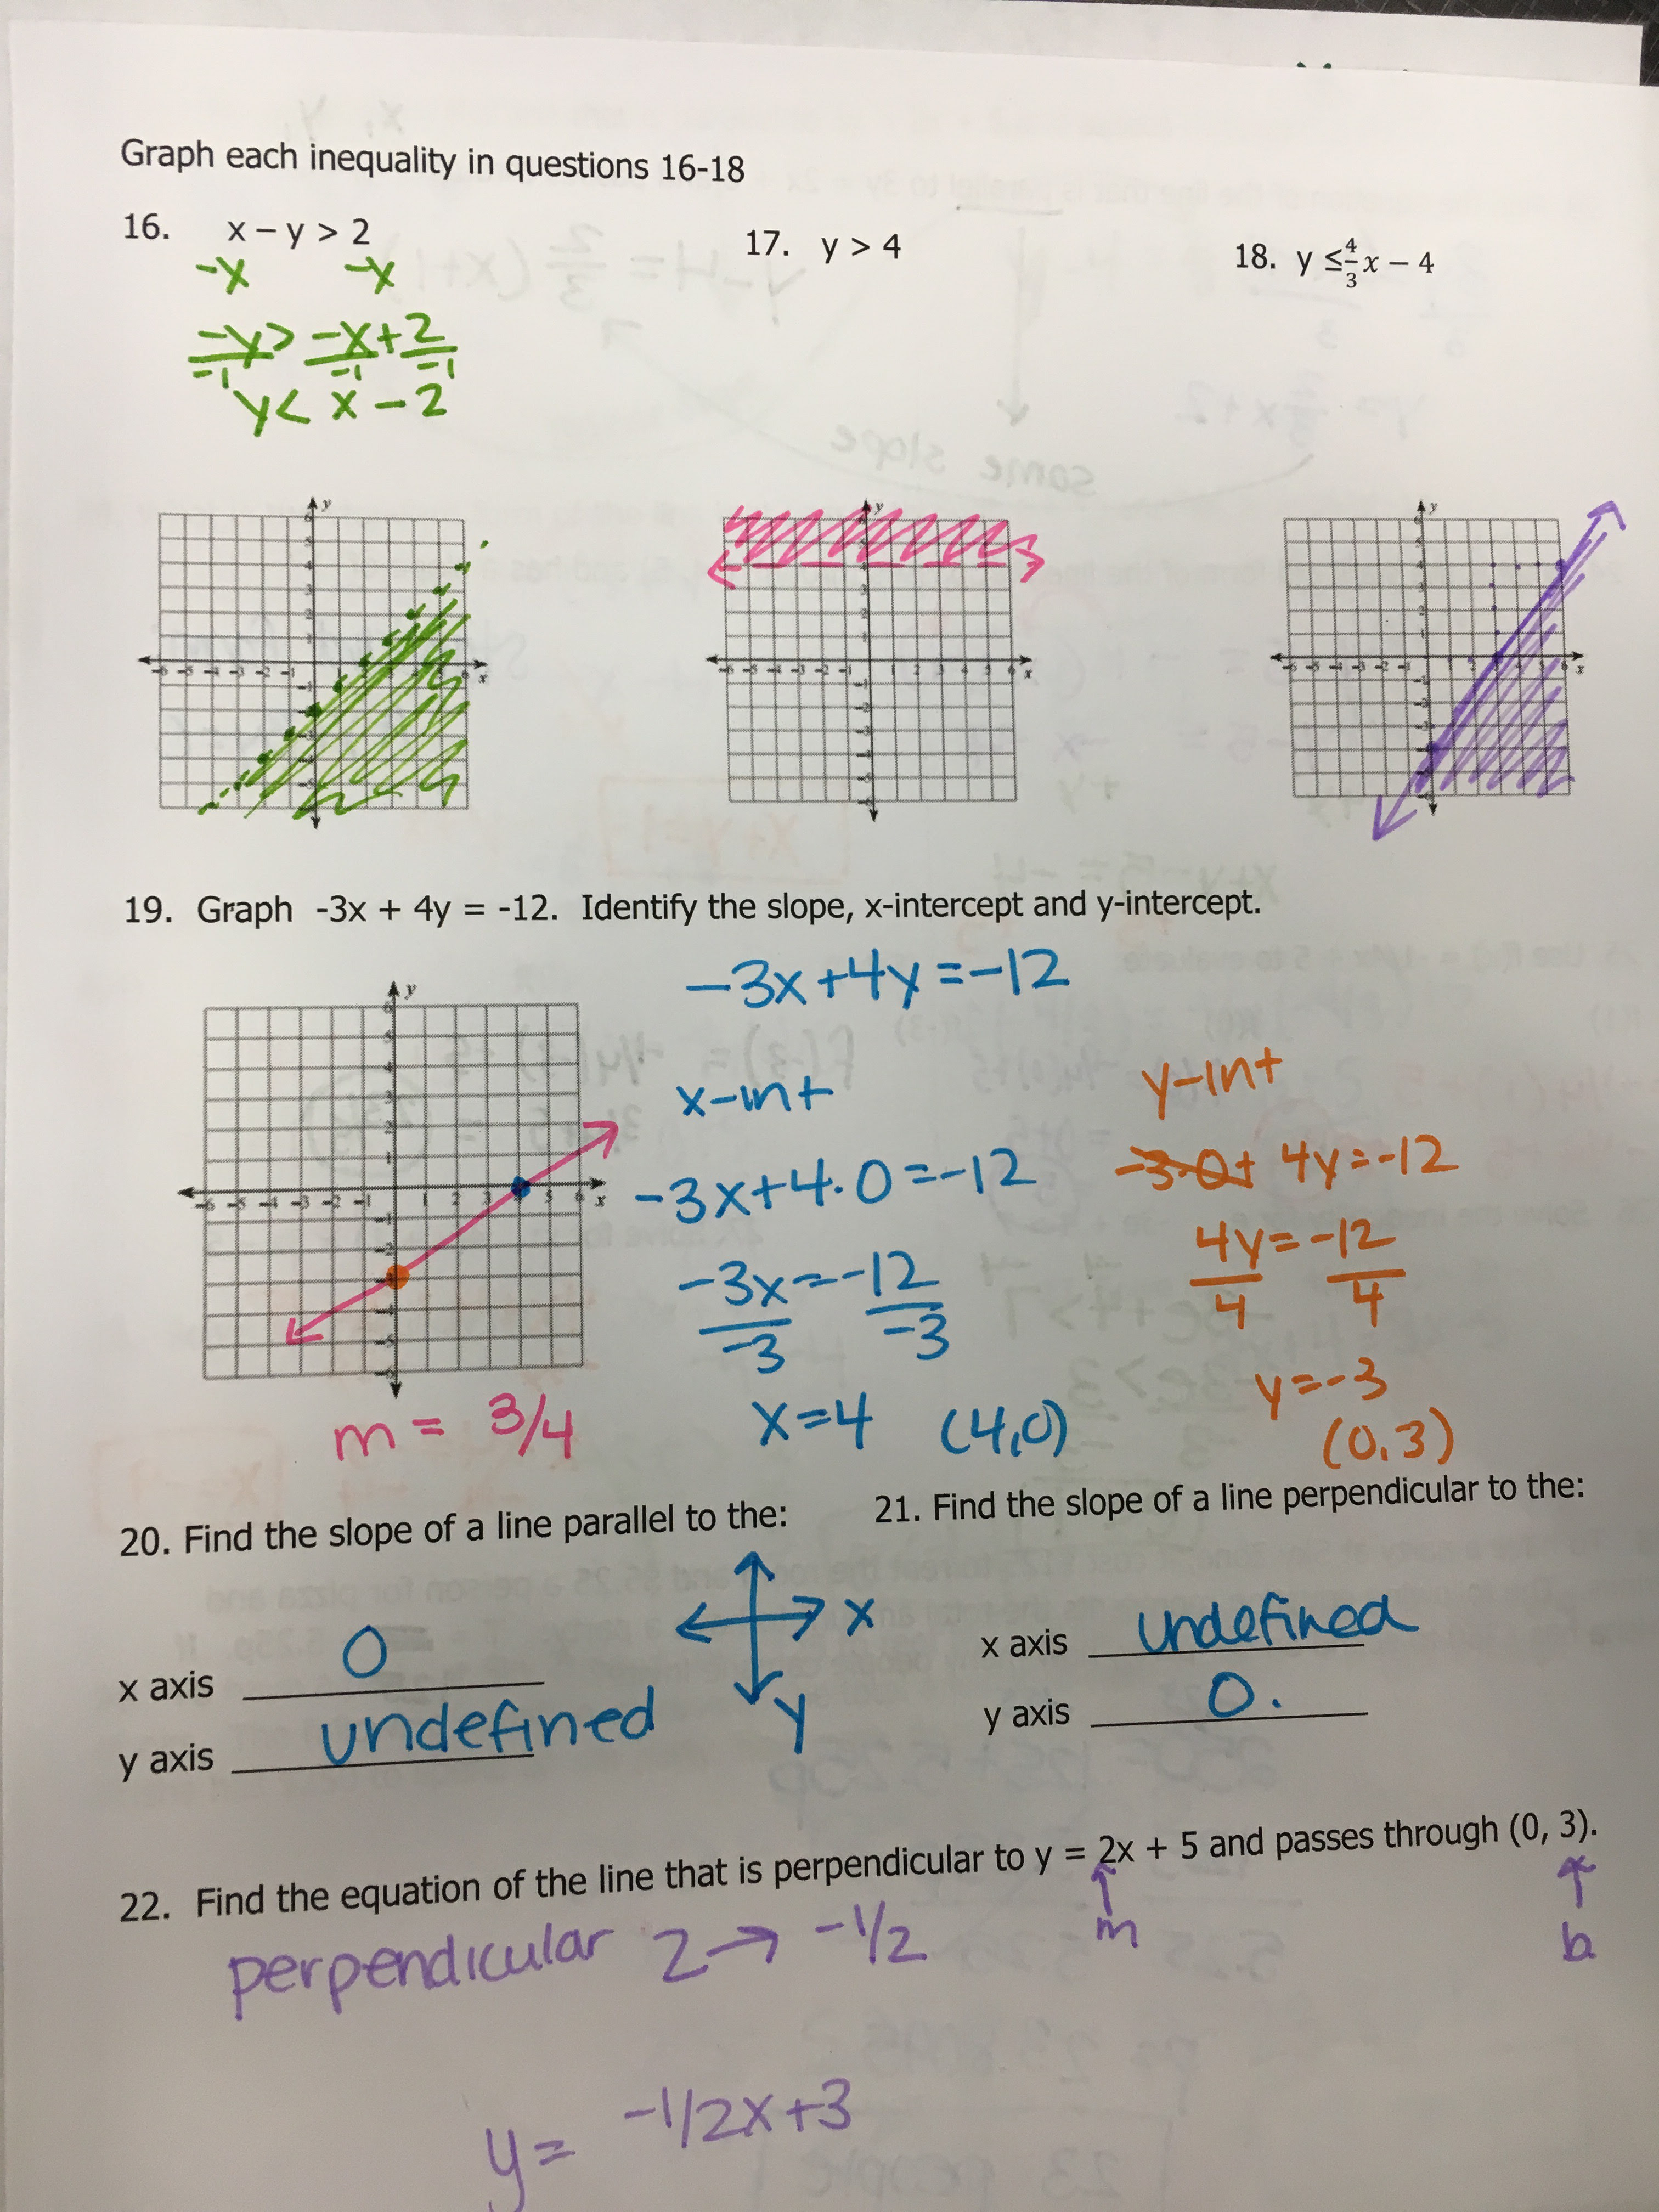 Graph each inequality in questions 16-18
16. x – y > 2
17. y > 4
18. y ≤ 4/3 x – 4
-x -x
-y > -x + 2
-1 -1 -1
y < x - 2
19. Graph -3x + 4y = -12. Identify the slope, x-intercept and y-intercept.
-3x + 4y = -12
x-int
y-int
-3x + 4·0 = -12
-3·0 + 4y = -12
-3x = -12
-3 -3
4y = -12
4 4
x = 4 (4,0)
y = -3
(0,3)
m = 3/4
20. Find the slope of a line parallel to the:
21. Find the slope of a line perpendicular to the:
x
y
x axis 0
y axis undefined
x axis undefined
y axis 0.
22. Find the equation of the line that is perpendicular to y = 2x + 5 and passes through (0, 3).
m
b
perpendicular 2 → -1/2
y = -1/2x+3